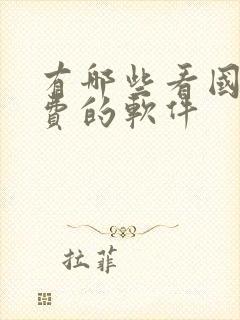 有哪些看國
費的軟件
拉菲